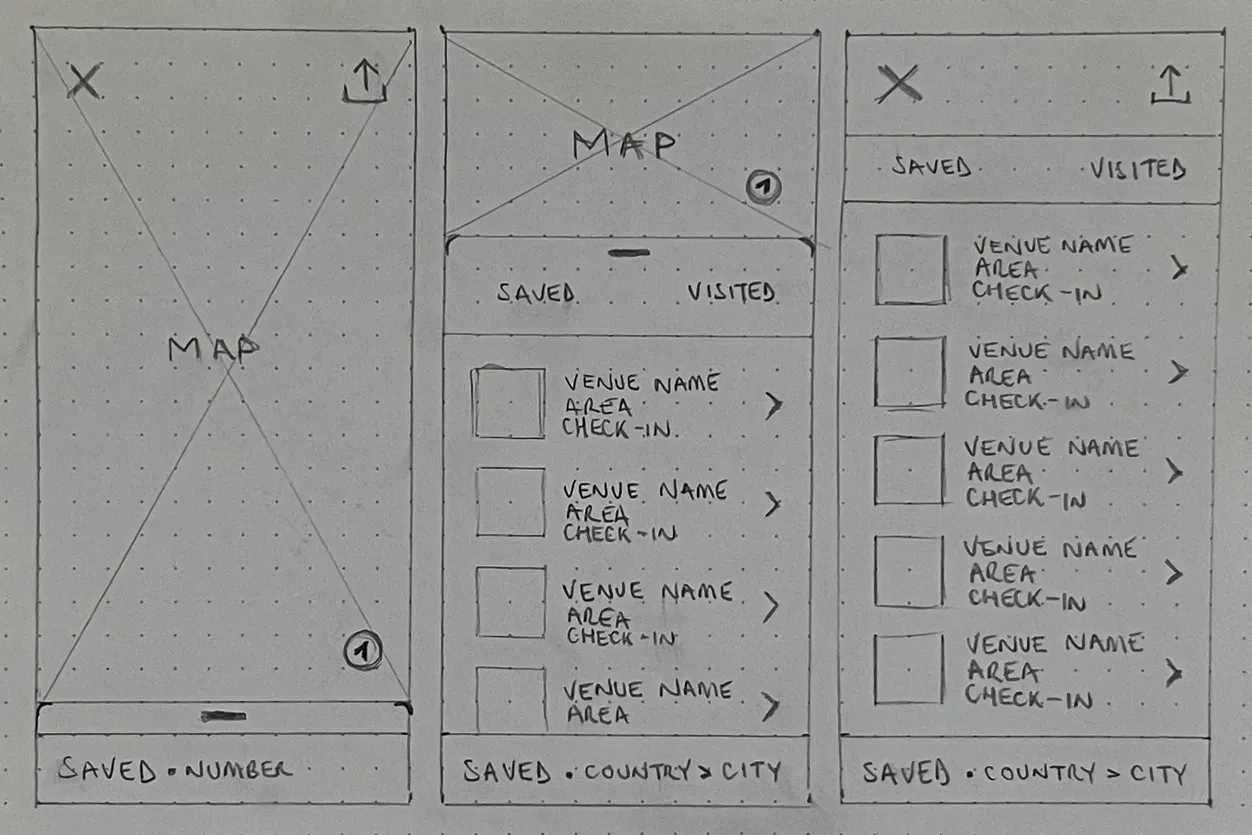 MAP
SAVED • NUMBER
MAP
SAVED VISITED
VENUE NAME
AREA
CHECK-IN
VENUE NAME
AREA
CHECK-IN
VENUE NAME
AREA
CHECK-IN
VENUE NAME
AREA
SAVED • COUNTRY > CITY
SAVED VISITED
VENUE NAME
AREA
CHECK-IN
VENUE NAME
AREA
CHECK-IN
VENUE NAME
AREA
CHECK-IN
VENUE NAME
AREA
CHECK-IN
VENUE NAME
AREA
CHECK-IN
SAVED • COUNTRY > CITY